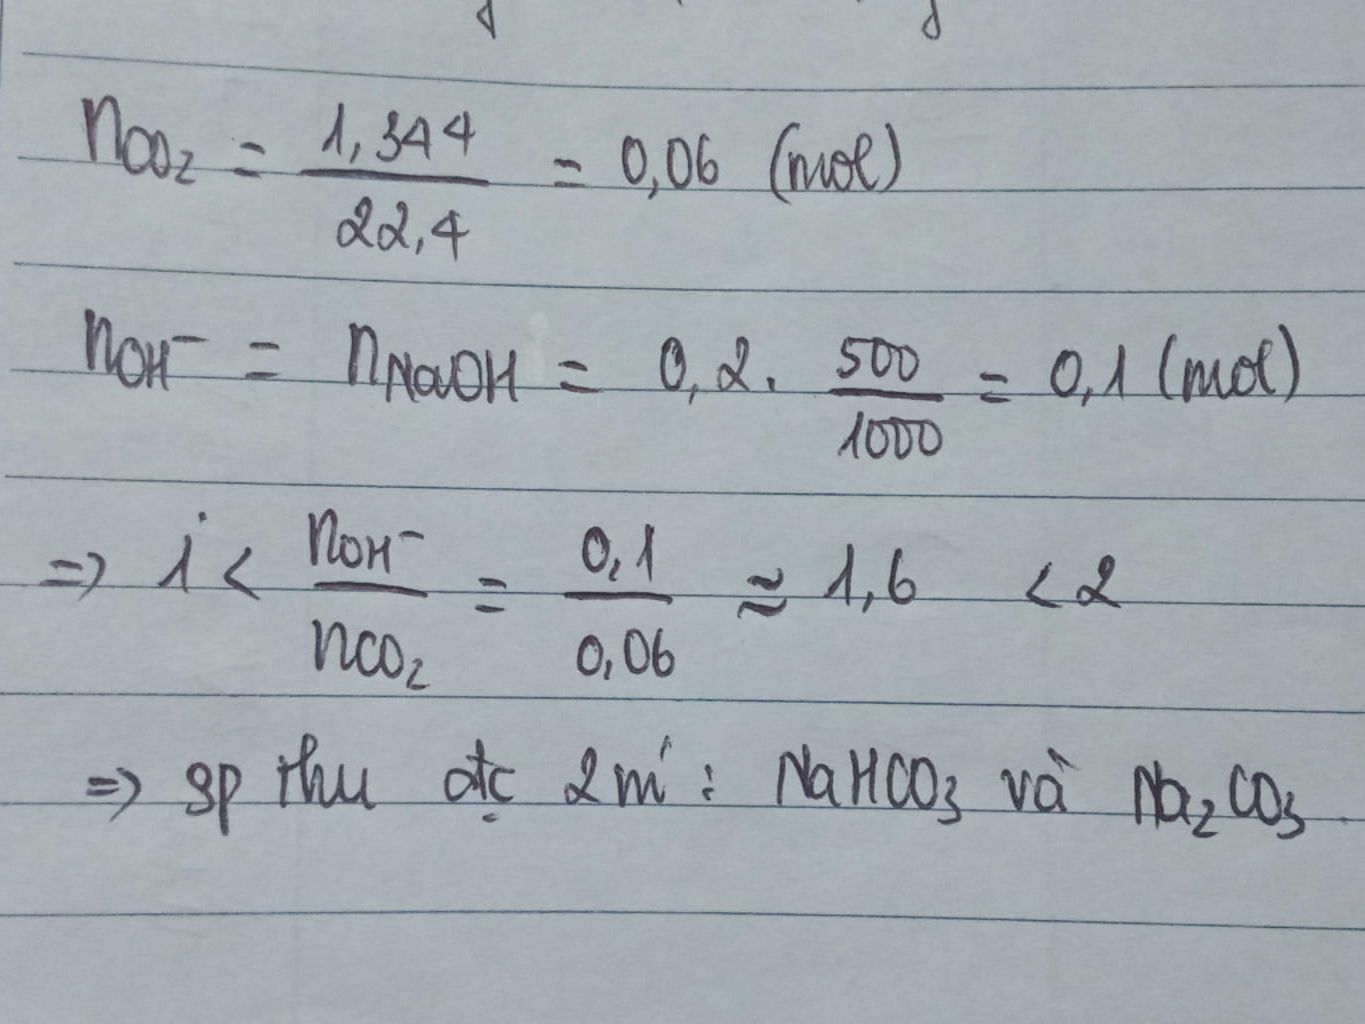 nCO₂ = 1,344 / 22,4 = 0,06 (mol)
nOH⁻ = nNaOH = 0,2 . 500 / 1000 = 0,1 (mol)
=> 1 < nOH⁻ / nCO₂ = 0,1 / 0,06 ≈ 1,6 < 2
=> sp thu đc 2 m' : NaHCO₃ và Na₂CO₃